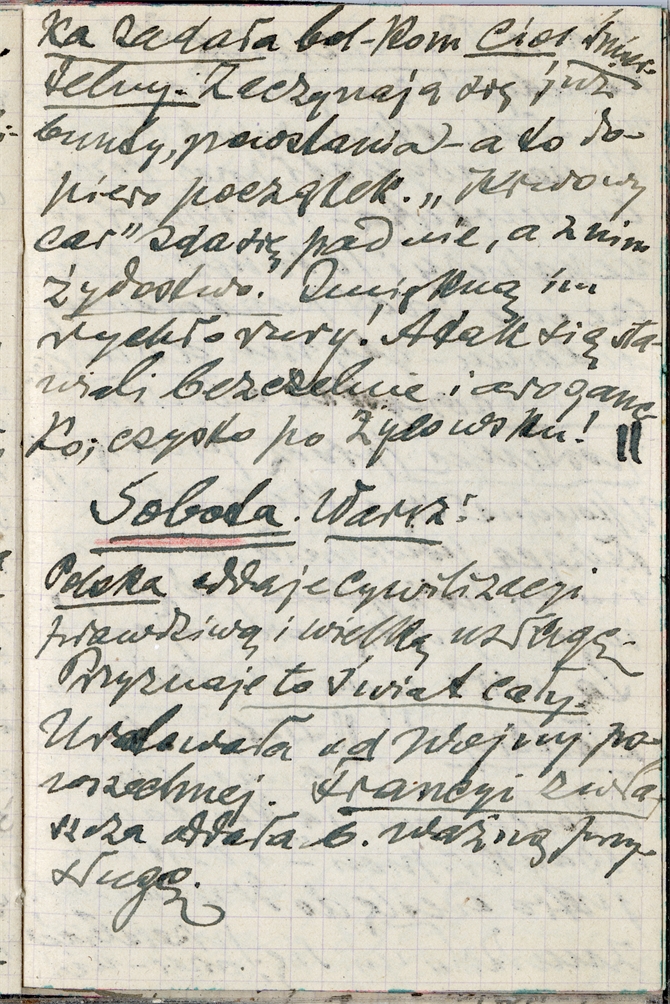 ka zadała bol-kom cios śmier-
telny. Zaczynają się już
bunty, powstania – a to do-
piero początek. „Krwawy
car" zda się, padnie, a z nim
żydostwo. Zmiękną im
rychło rury! A tak się sta-
wiali bezczelnie i aroganc-
ko; czysto po żydowsku!
Sobota. Warsz:
Polska oddaje cywilizacyi
prawdziwą i wielką usługę.
Przyznaje to świat cały.
Uratowała od wojny po-
wszechnej. Francyi zwła-
szcza oddała b. ważną przy-
sługę.